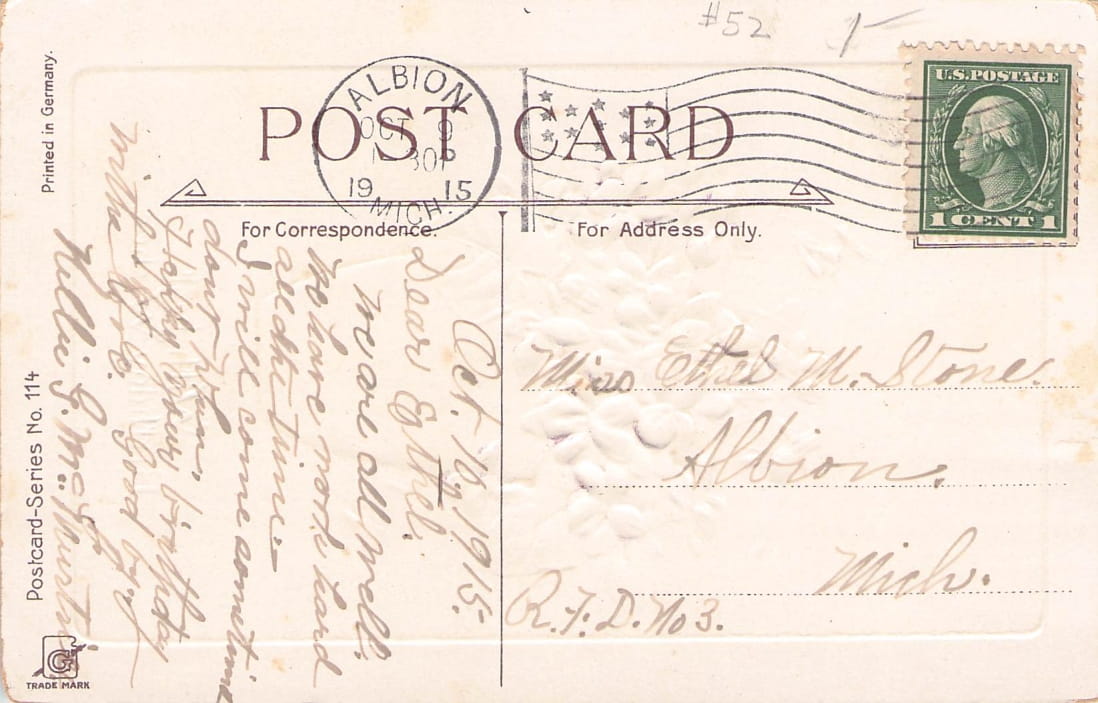 #52
Printed in Germany.
ALBION
OCT 9
30P
1915
MICH.
POST CARD
U.S.POSTAGE
1 CENT 1
For Correspondence.
For Address Only.
Oct. 10, 1915.
Dear Ethel.
We are all well.
We have work hard
all the time.
I will come sometime
dont when.
Happy your birthday
Good bye
Miss Ethel M. Stone.
Albion.
Mich.
R.F.D. No 3.
Postcard-Series No. 114
TRADE MARK